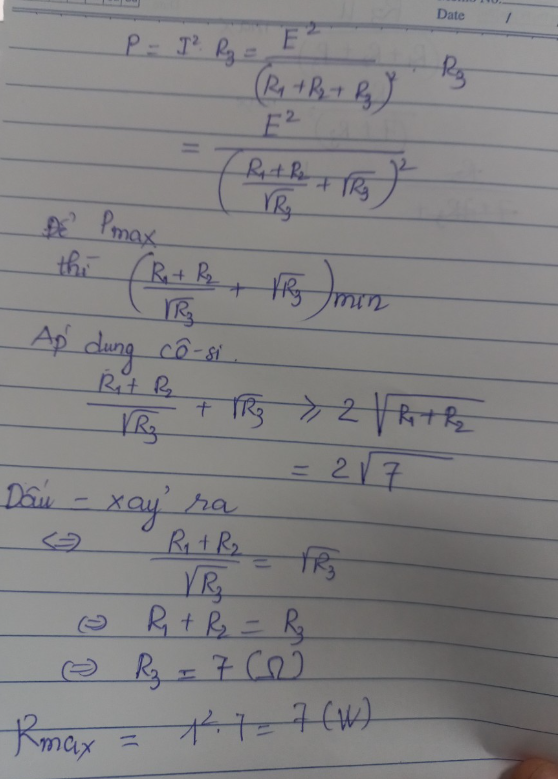 Date /
P = I². R₃ = E² / (R₁ + R₂ + R₃)² . R₃
= E² / ((R₁ + R₂)/√R₃ + √R₃)²
Để Pmax
thì ((R₁ + R₂)/√R₃ + √R₃)min
Áp dung cô-si.
(R₁ + R₂)/√R₃ + √R₃ ⩾ 2√(R₁ + R₂)
= 2√7
Dấu = xảy ra
⇔ (R₁ + R₂)/√R₃ = √R₃
⇔ R₁ + R₂ = R₃
⇔ R₃ = 7 (Ω)
Rmax = 1². 7 = 7 (W)